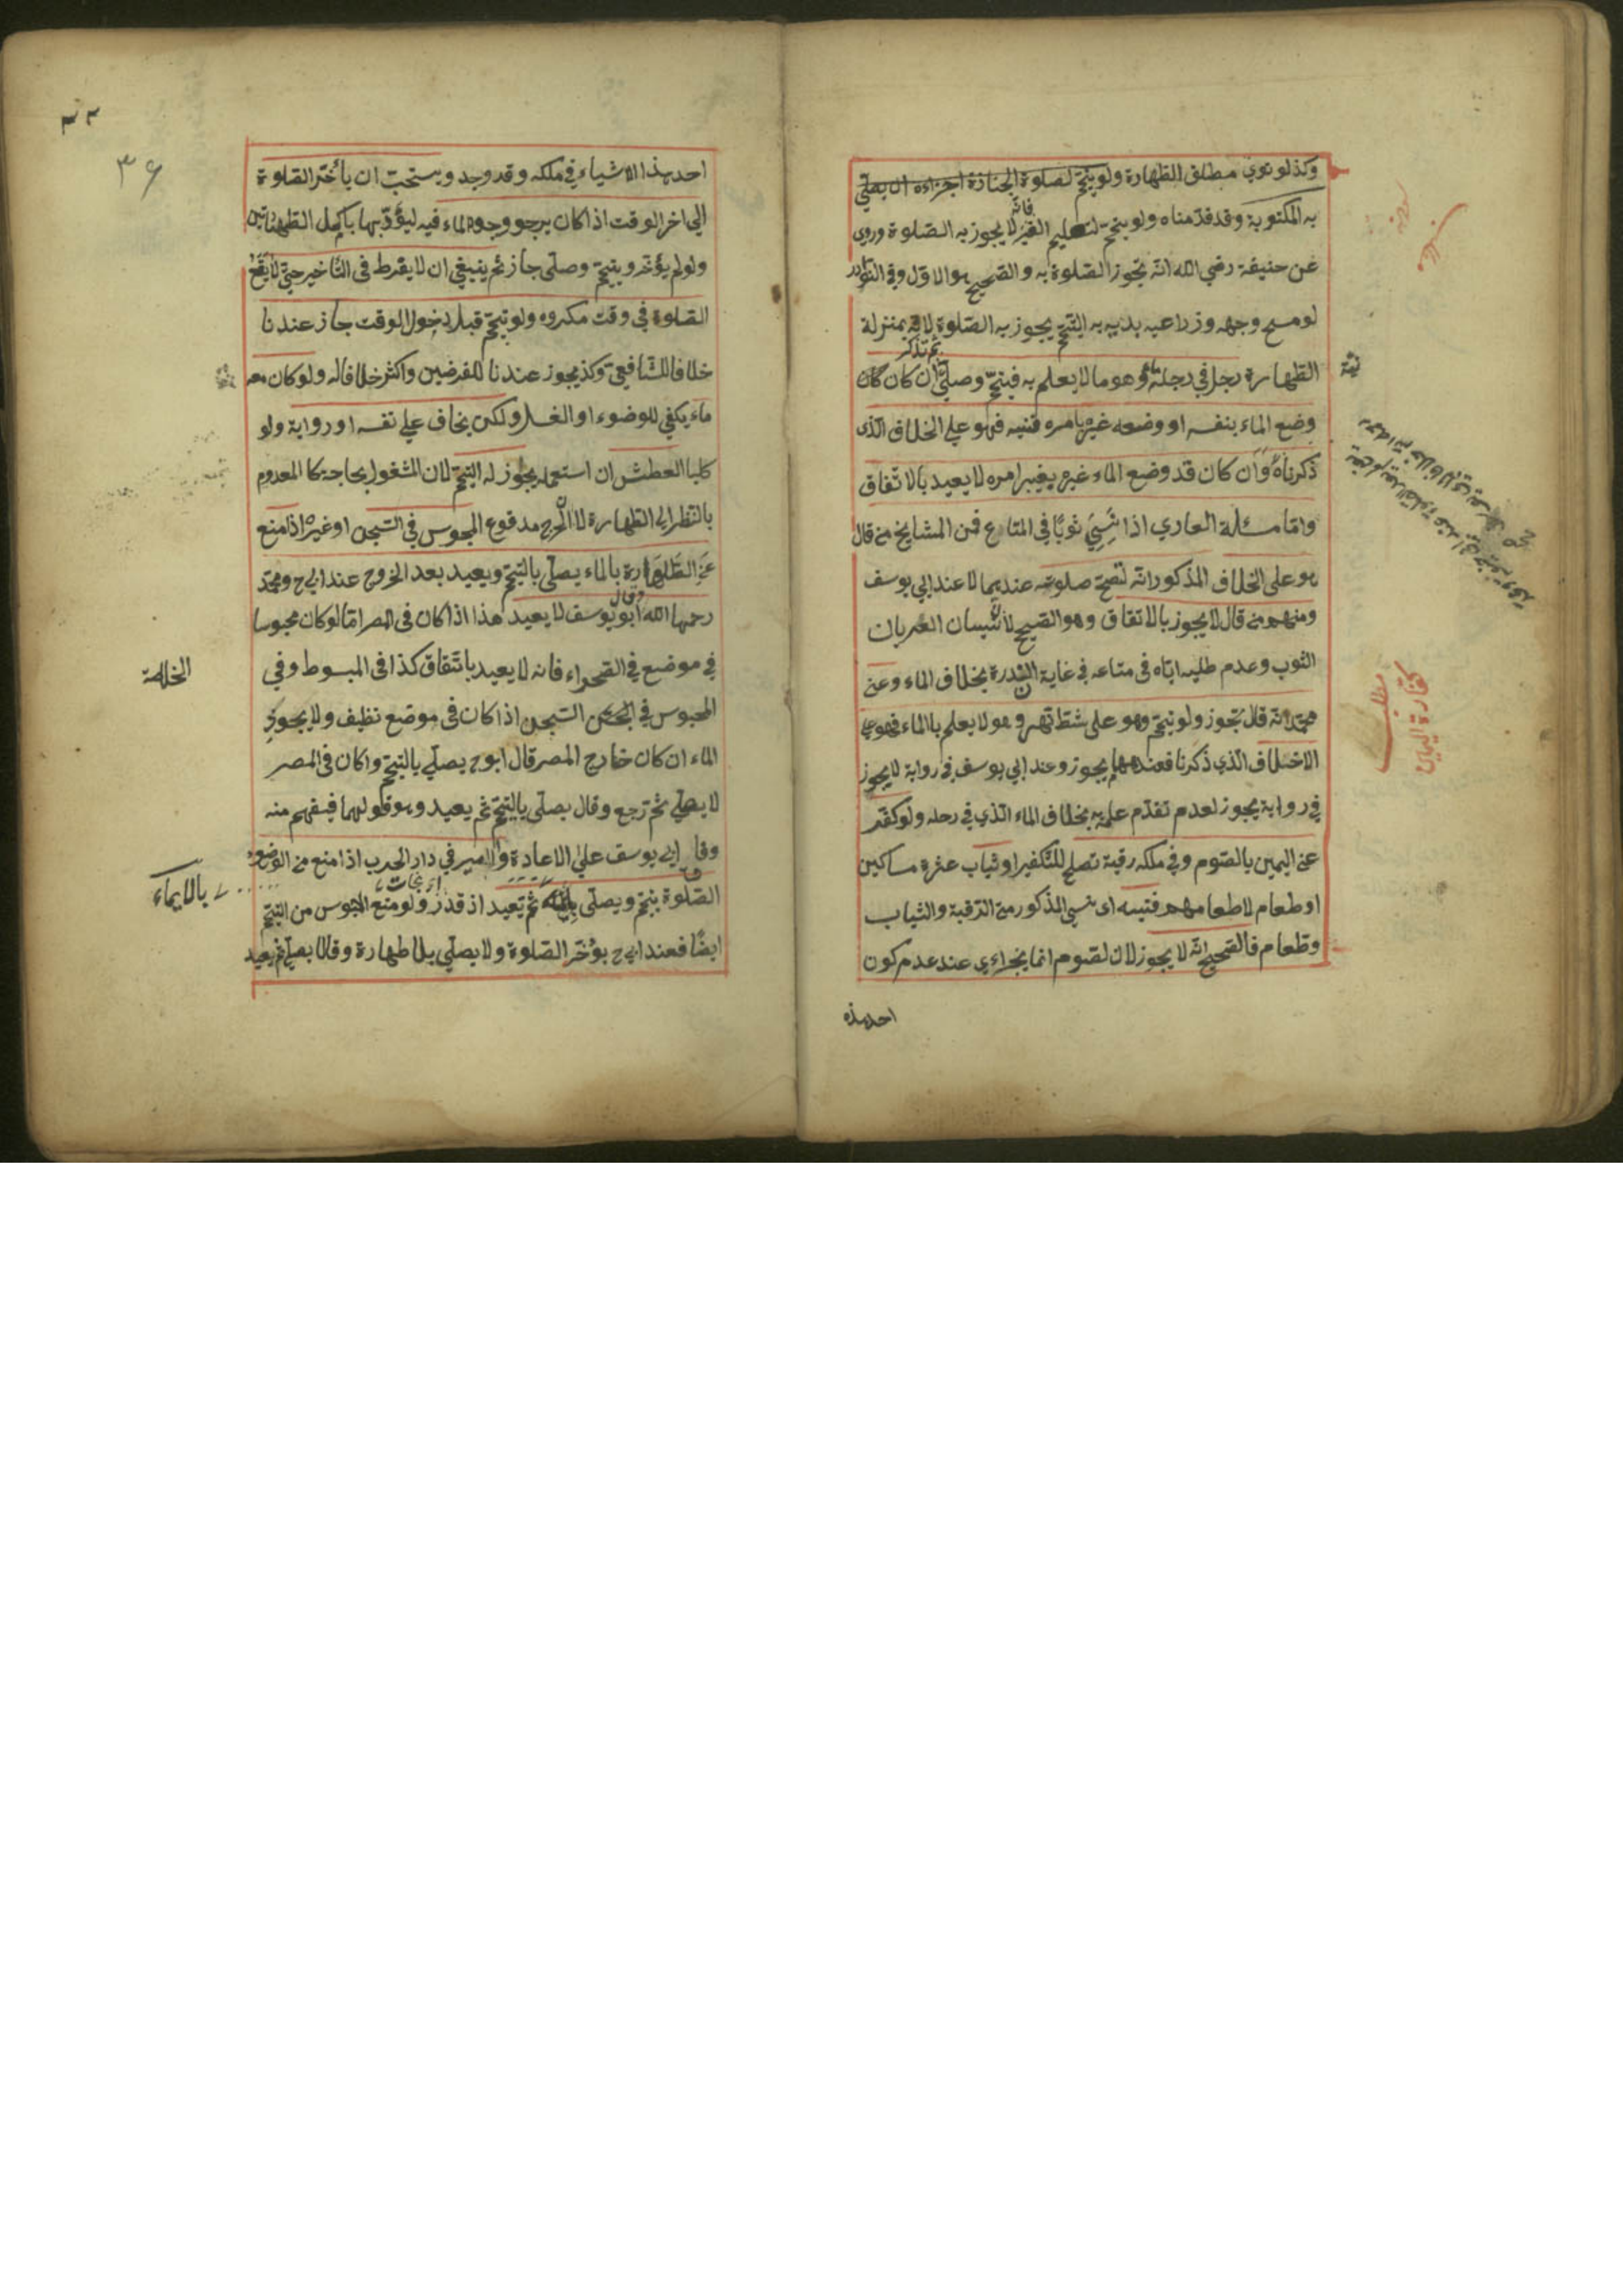 وكذلو نوي مطلق الطهارة ولو تيمم لصلوة الجنازة اجزاءه ان يصلي
به المكتوبة وقد قدمناه ولو تيمم لتعليم الغير فانه لا يجوز به الصلوة وروي
عن حنيفة رضي الله انه يجوز الصلوة به والصحيح هو الاول وفي النوادر
لو مسح وجهه وزراعيه بديه به التيمم يجوز به الصلوة لانه بمنزلة
الطهارة رجل في رحله ماء وهو ما لا يعلم به فتيمم وصلي ثم تذكر ان كان كان
وضع الماء بنفسه او وضعه غيره بامره فنسيه فهو علي الخلاف الذي
ذكرناه وان كان قد وضع الماء غيره بغير امره لا يعيد بالاتفاق
واما مسئلة العاري اذا نسي ثوبا في المتاع فمن المشايخ من قال
هو علي الخلاف المذكور انه تصح صلوته عندهما لا عند ابي يوسف
ومنهم من قال لا يجوز بالاتفاق وهو الصحيح لان نسيان العريان
الثوب وعدم طلبه اياه في متاعه في غاية الندرة بخلاف الماء وعن
محمد انه قال يجوز ولو تيمم وهو علي شط نهر وهو لا يعلم بالماء فهو علي
الاختلاف الذي ذكرنا فعندهما يجوز وعند ابي يوسف في رواية لا يجوز
في رواية يجوز لعدم تقدم علمه به بخلاف الماء الذي في رحله ولو كفر
عن اليمين بالصوم وفي ملكه رقبة تصلح للتكفير او ثياب عشرة مساكين
او طعام لاطعامهم فنسيه اي نسي المذكور من الرقبة والثياب
وطعام فالصحيح انه لا يجوز لان لصوم انما يجزاءي عند عدم كون
احد هذه
تتمة
مطلب
كفارة اليمين
٣٦
احد هذا الاشياء في ملكه وقد وجد ويستحب ان يأخر الصلوة
الي اخر الوقت اذا كان يرجو وجود الماء فيه ليؤديها باكمل الطهارتين
ولو لم يؤخر وتيمم وصلي جاز ثم ينبغي ان لا يفرط في التأخير حتي لا يقع
الصلوة في وقت مكروه ولو تيمم قبل دخول الوقت جاز عندنا
خلافا للشافعي وكذ يجوز عندنا للفرضين واكثر خلافا له ولو كان معه
ماء يكفي للوضوء او الغسل ولكن يخاف علي نفسه او دوابه ولو
كلبا العطش ان استعمله يجوز له التيمم لان المشغول بحاجته كا المعدوم
بالنظر الي الطهارة لان الحرج مدفوع المحبوس في السجن او غيره اذا منع
عن الطهارة بالماء يصلي بالتيمم ويعيد بعد الخروج عند ابي ح ومحمد
رحمها الله وقال ابو يوسف لا يعيد هذا اذا كان في المصر اما لو كان محبوسا
في موضع في الصحراء فانه لا يعيد باتفاق كذا في المبسوط وفي
المحبوس في السجن اذا كان في موضع نظيف ولا يجوز
الماء ان كان خارج المصر قال ابو ح يصلي بالتيمم وا كان في المصر
لا يصلي ثم رجع وقال يصلي بالتيمم ثم يعيد وهو قولهما فيفهم منه
وقا ابي يوسف علي الاعادة والاسير في دار الحرب اذا منع من الوضوء
الصلوة تيمم ويصلي ثم تعيد اذ قدر ولو منع المحبوس من التيمم
ايضا فعند ابي ح يؤخر الصلوة ولا يصلي بلا طهارة وقالا يصلي ثم يعيد
الخلاصة
بالايماء